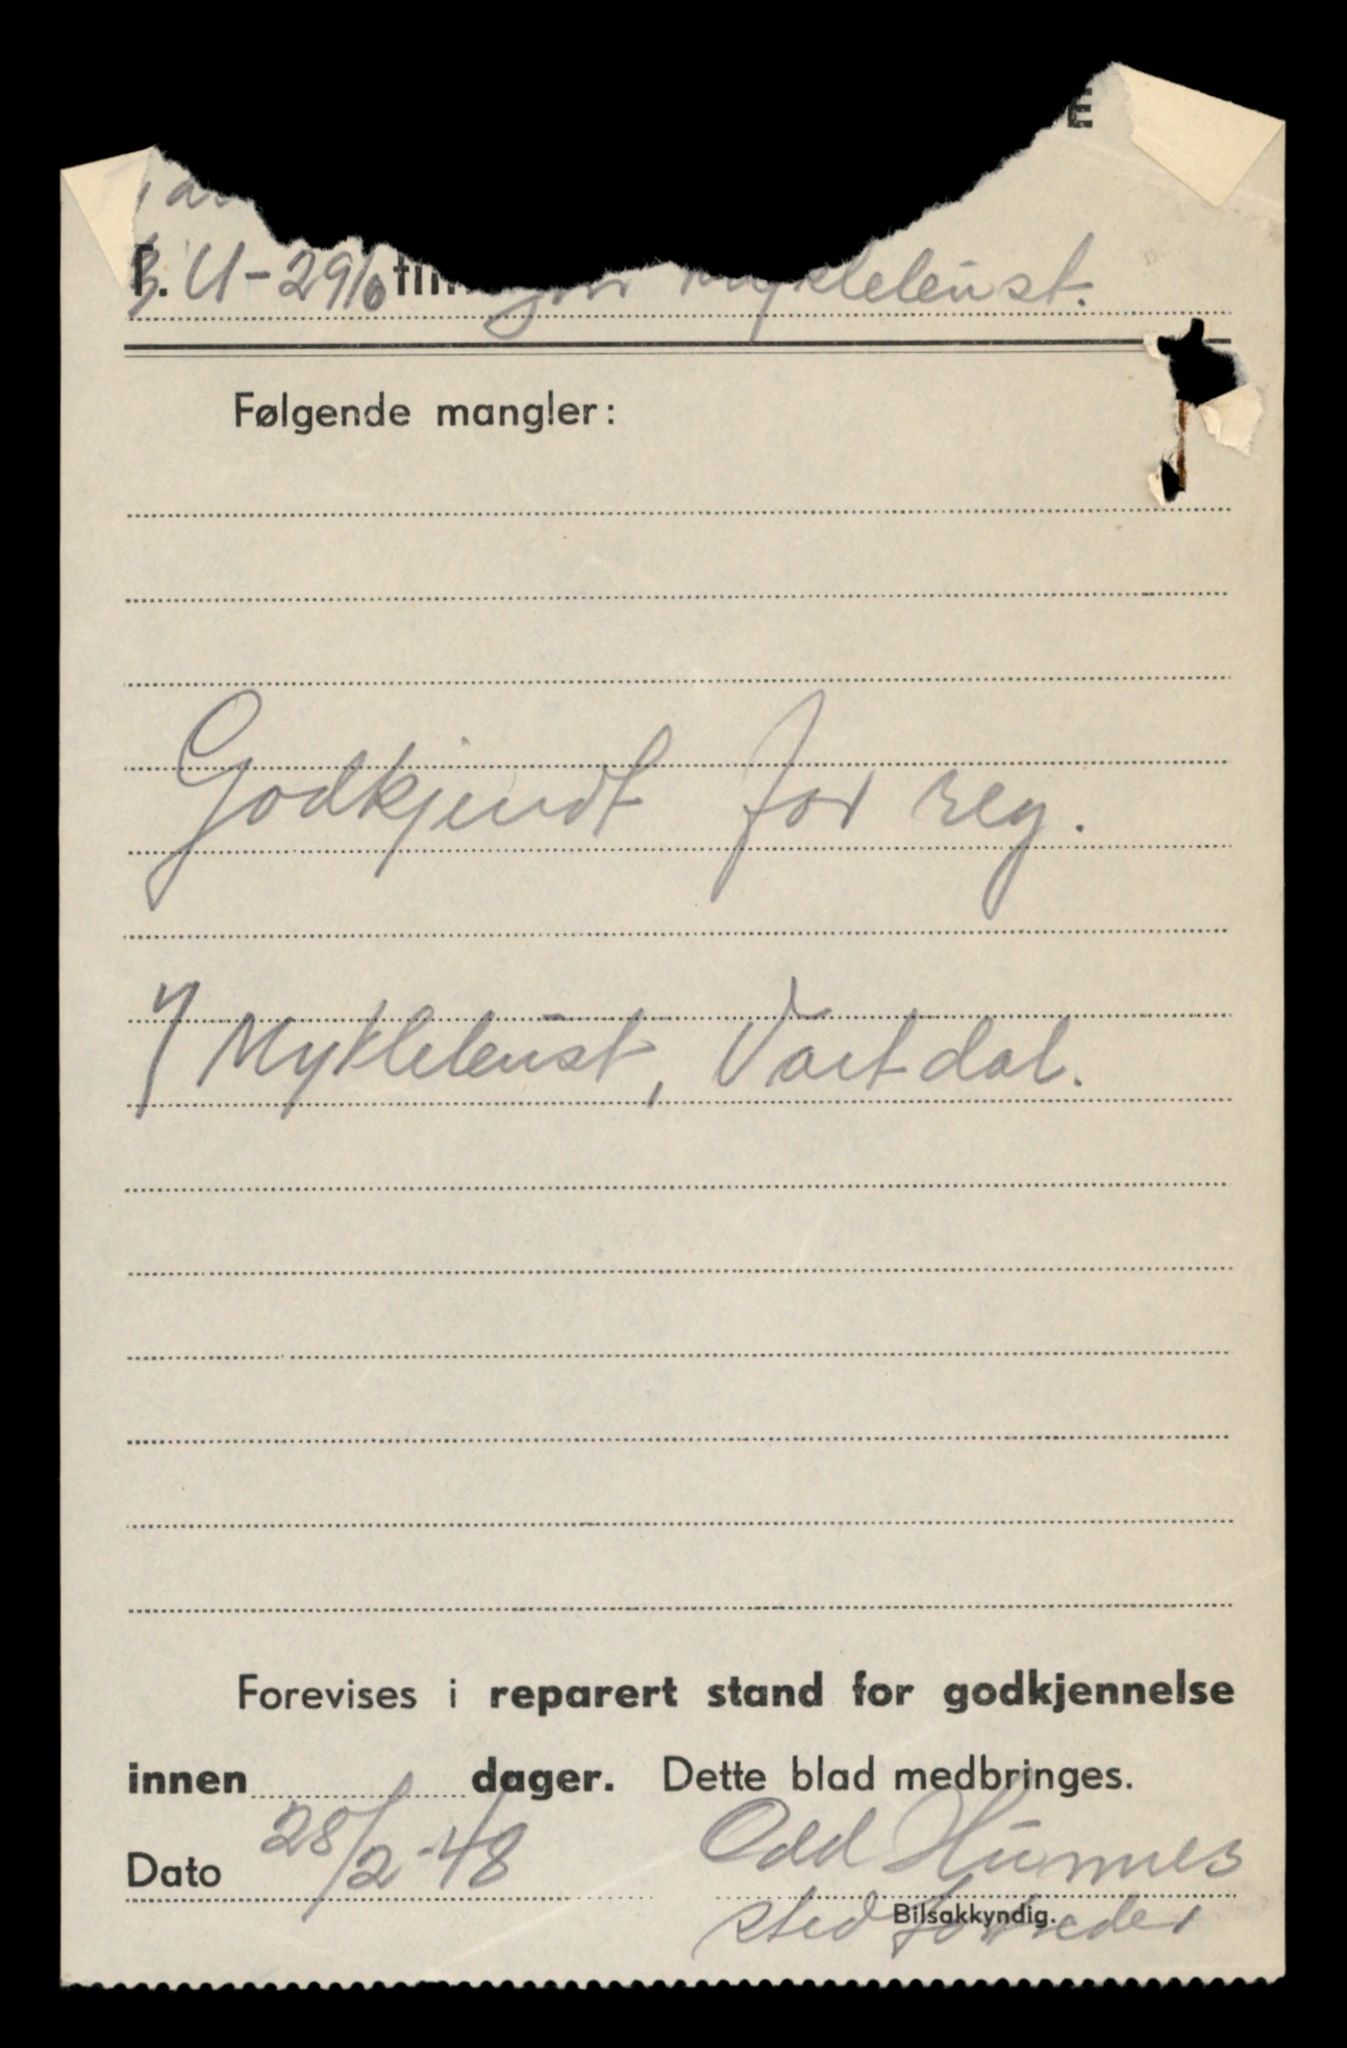 E
U-2916 Myklebust.
Følgende mangler:
Godkjendt for reg.
Myklebust, Vartdal.
Forevises i reparert stand for godkjennelse
innen dager. Dette blad medbringes.
Dato 28/2-48 Odd Hunnes
Bilsakkyndig.
stedfortreder